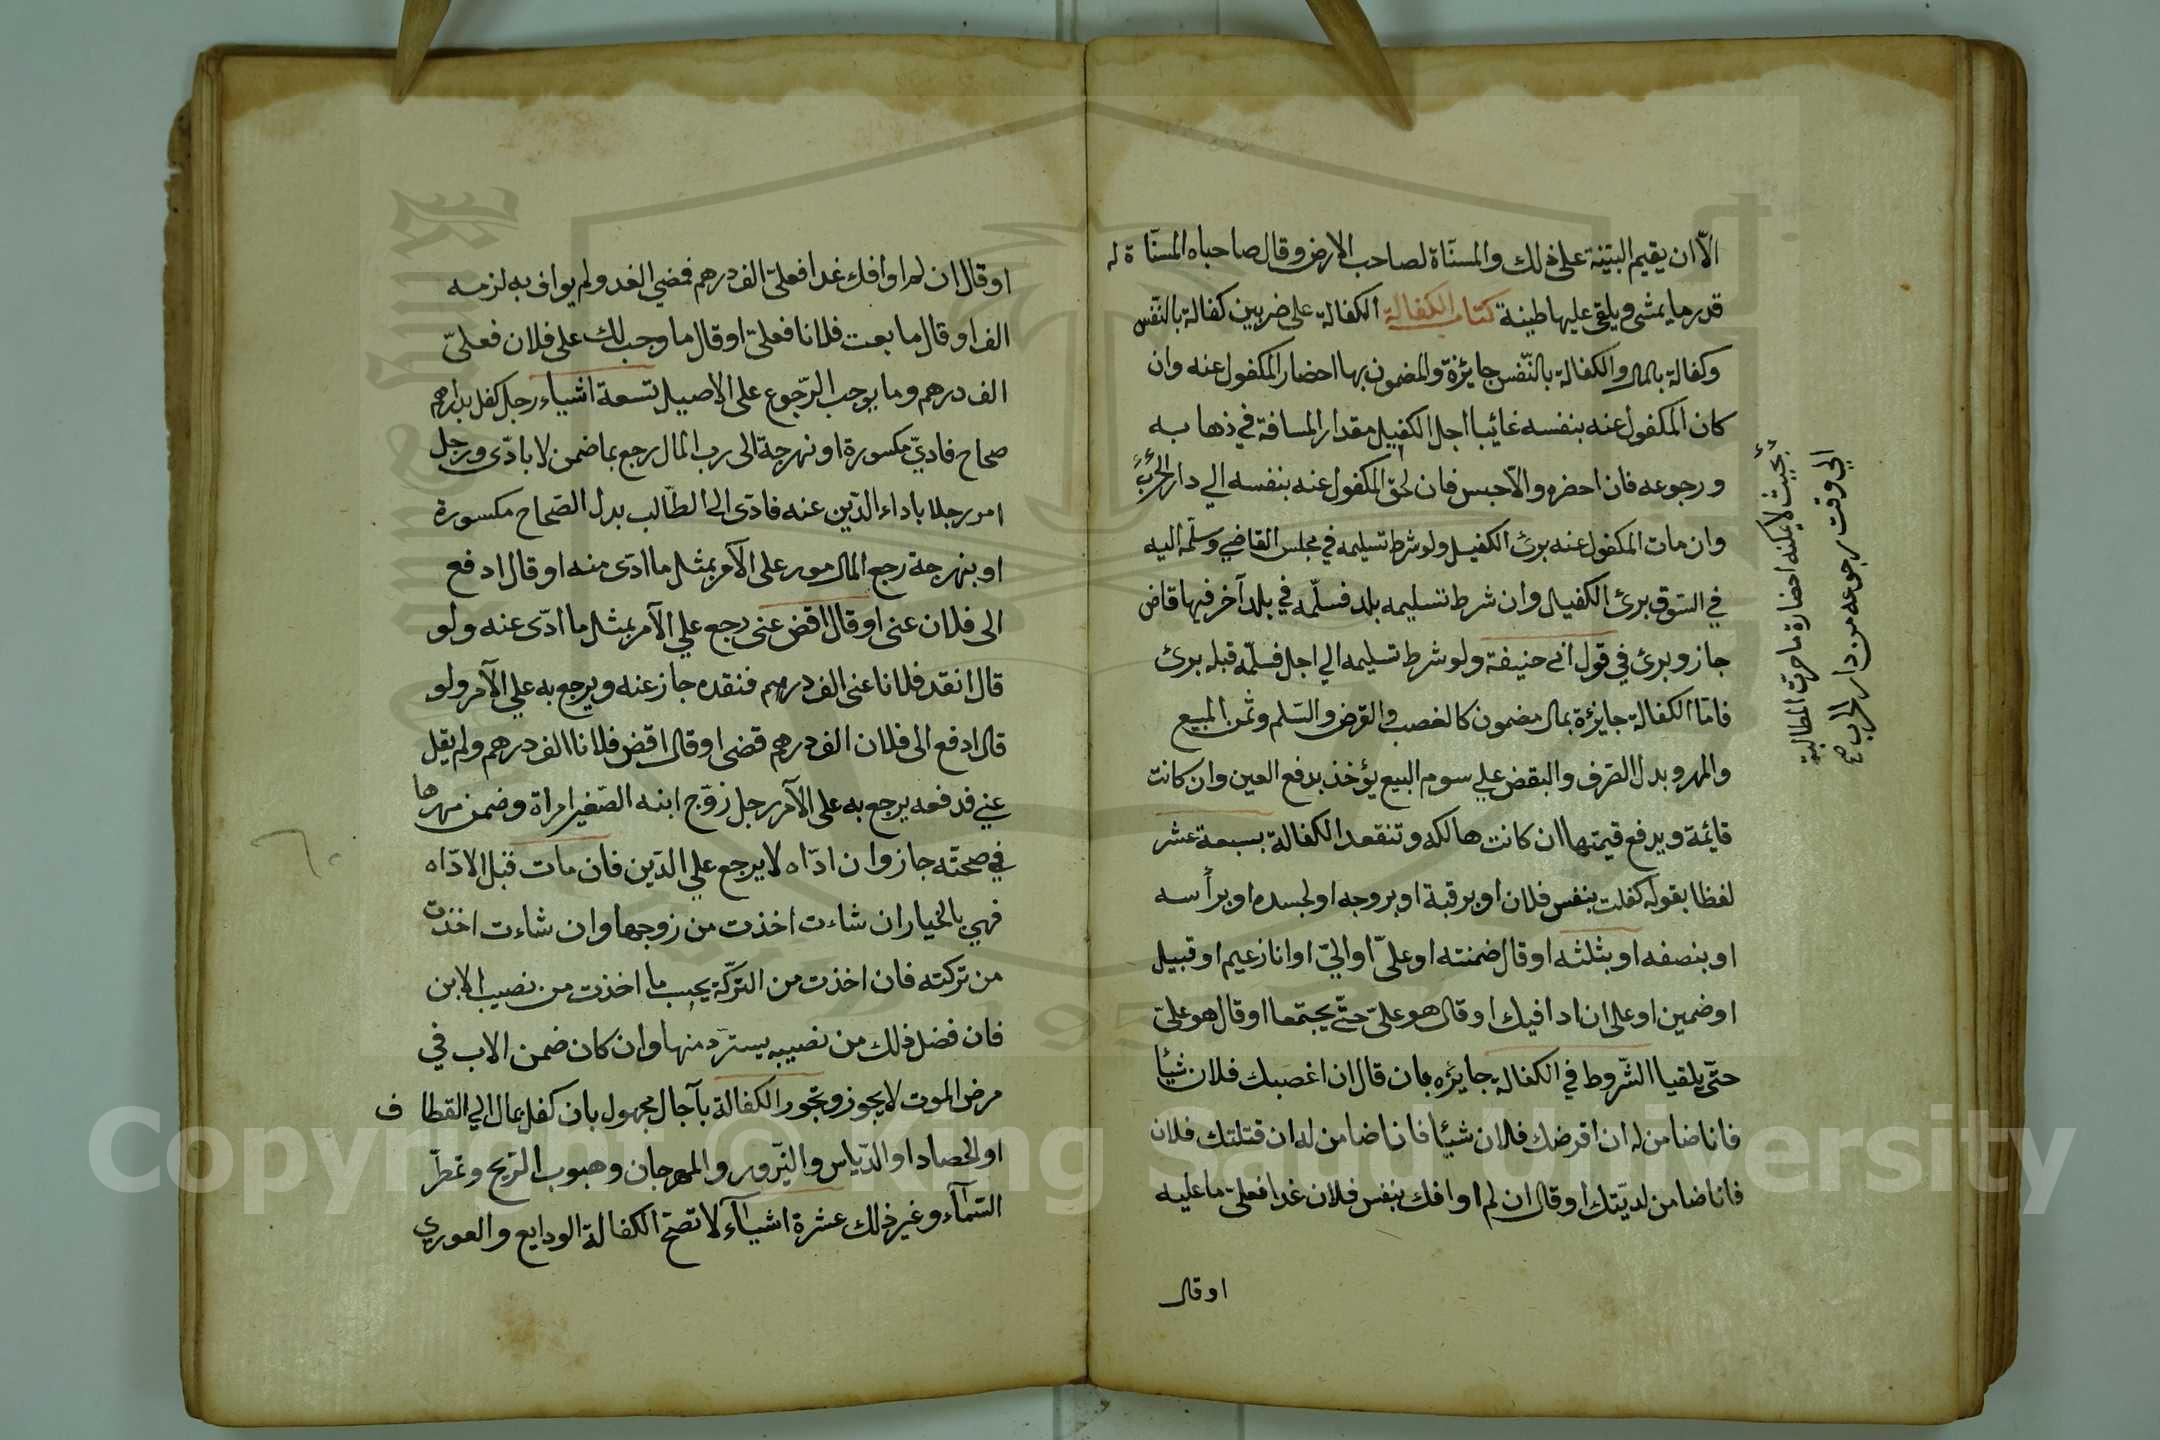 الّا ان يقيم البيّنة على ذلك والمسنّاة لصاحب الارض وقال صاحباه المسنّاة له
قدر ما يمشى ويلقى عليها طينة كتاب الكفالة الكفالة على ضربين كفالة بالنّفس
وكفالة بالمال والكفالة بالنّفس جايزة والمضمون بها احضار المكفول عنه وان
كان المكفول عنه بنفسه غائبا اجل الكفيل مقدار المسافة في ذهابه
ورجوعه فان احضره والّا حبس فان لحق المكفول عنه بنفسه الي دار الحرب
وان مات المكفول عنه برئ الكفيل ولو شرط تسليمه في مجلس القاضي وسلّمه اليه
في السّوق برئ الكفيل وان شرط تسليمه بلد فسلّمه في بلد آخر فيها قاض
جاز وبرئ في قول ابي حنيفة ولو شرط تسليمه الي اجل فسلّمه قبله برئ
فامّا الكفالة جايزة بمال مضمون كالغصب والقرض والسّلم وثمن المبيع
والمهر وبدل الصّرف والبقض علي سوم البيع يؤخذ بدفع العين وان كانت
قايمة ويدفع قيمتها ان كانت هالكه وتنعقد الكفالة بسبعة عشر
لفظا بقوله كفلت بنفس فلان او برقبة او بروجه او لجسده او برأسه
او بنصفه او بثلثه او قال ضمنته او علىّ او اليّ او انا زعيم او قبيل
او ضمين او على ان ادافيك او قال هو علىّ حتّى يجتمعا او قال هو علىّ
حتّى يلقيا الشّروط في الكفالة جايزه بان قال ان اغصبك فلان شيئا
فانا ضامن له ان اقرضك فلان شيئا فانا ضامن له ان قتلتك فلان
فانا ضامن لديّتك او قال ان لم اوافك بنفس فلان غدا فعلىّ ما عليه
او قال
بحيث لا يمكنه احضاره ما حرّت المطالبة
الي وقت رجوعه من دار الحرب صح
او قال ان لم اوافك غدا فعلىّ الف درهم فمضي الغد ولم يواف به لزمه
الف او قال ما بعت فلانا فعلىّ او قال ما وجب لك على فلان فعلىّ
الف درهم وما يوجب الرّجوع على الاصيل تسعة اشياء رجل كفل بدارهم
صحاح فادىّ مكسورة او نهرجة الى رب المال رجع بما ضمن لا بادّى ورجل
امر رجلا باداء الدّين عنه فادّى الى الطّالب بدل الصّحاح مكسورة
او بنهرجة رجع المال مور على الآمر بمثل ما ادى منه او قال ادفع
الى فلان عنى او قال اقض عنى رجع علي الآمر بمثل ما ادّى عنه ولو
قال انقد فلانا عنى الف درهم فنقده جاز عنه ويرجع به علي الآمر ولو
قال ادفع الى فلان الف درهم قضى او قال اقض فلانا الف درهم ولم يقل
عني فدفعه يرجع به على الآمر رجل زوّج ابنه الصّغير امراة وضمن مهرها
في صحته جاز وان ادّاه لا يرجع علي الدّين فان مات قبل الادّاه
فهي بالخيار ان شاءت اخذت من زوجها وان شاءت اخذت
من تركته فان اخذت من التركّة يحسب ما اخذت من نصيب الابن
فان فضل ذلك من نصيبه يستردّ منها وان كان ضمن الاب في
مرض الموت لا يجوز وتجوز الكفالة بآجال مجهول بان كفل بمال الي القطاف
او الحصاد او الديّاس والنّيروز والمهرجان وهبوب الرّيح وتمطر
السّمآء وغير ذلك عشرة اشيآء لا تصحّ الكفالة الودايع والعوري